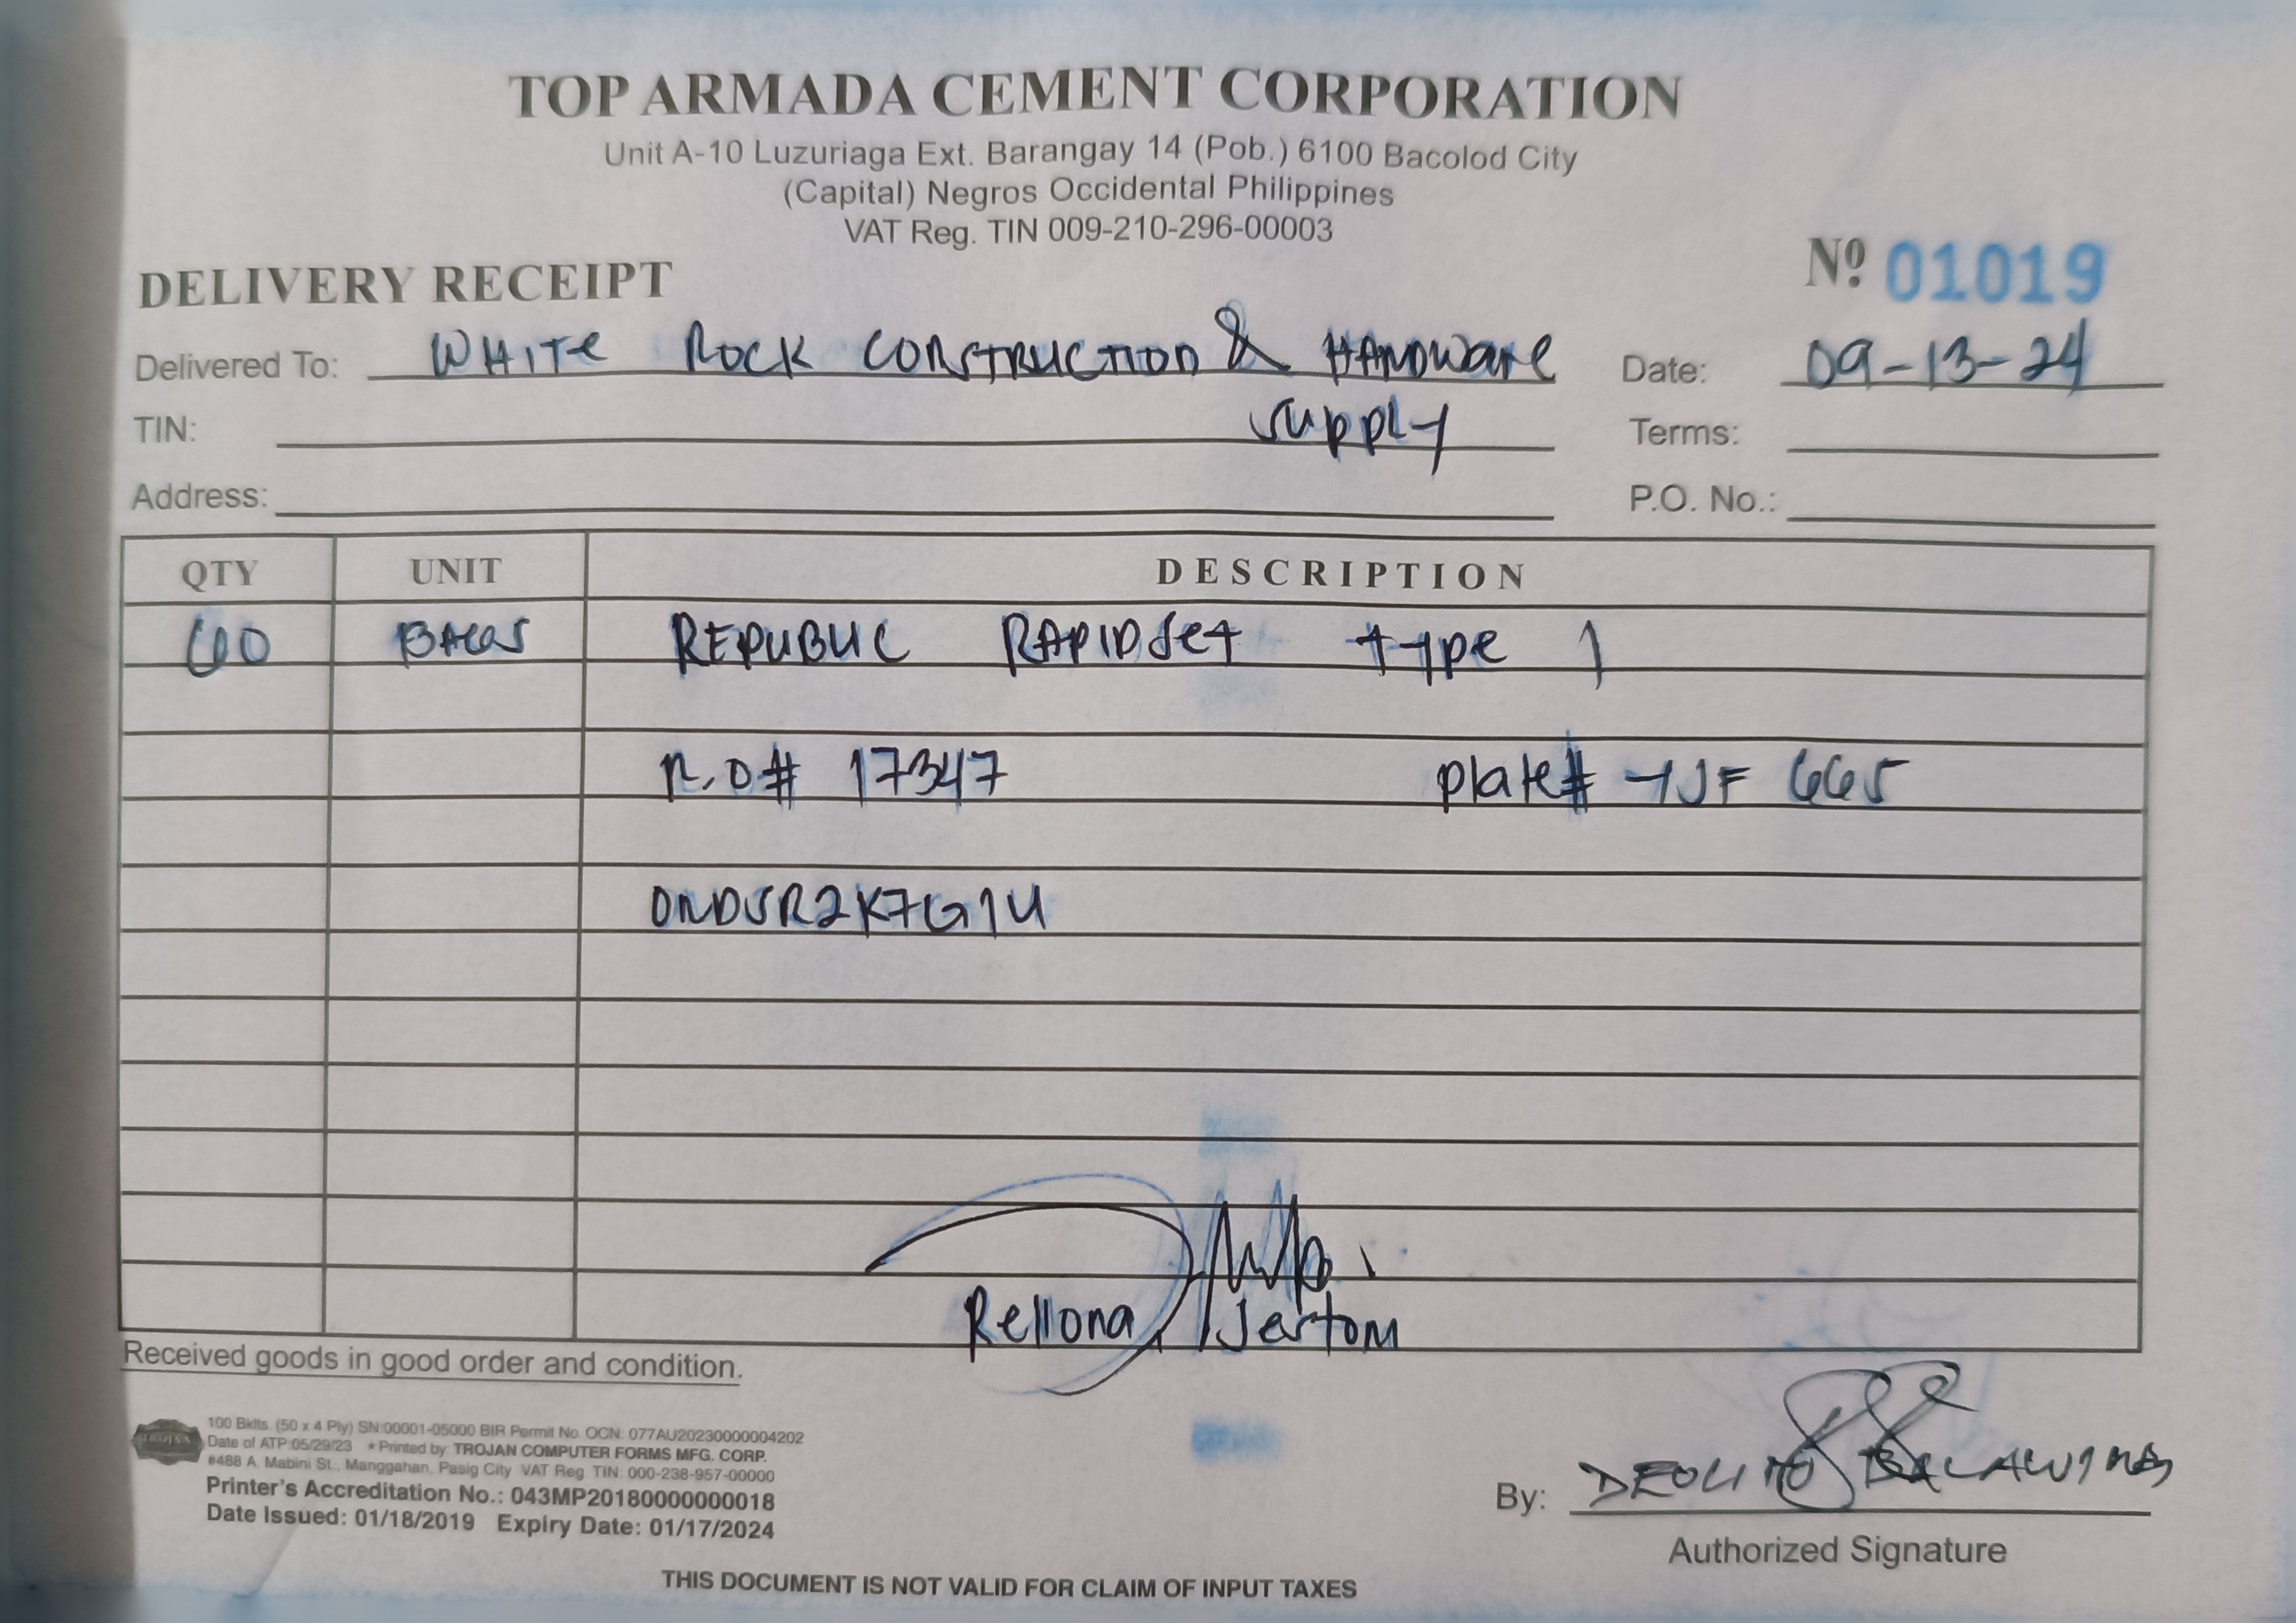 TOP ARMADA CEMENT CORPORATION
Unit A-10 Luzuriaga Ext. Barangay 14 (Pob.) 6100 Bacolod City
(Capital) Negros Occidental Philippines
VAT Reg. TIN 009-210-296-00003
DELIVERY RECEIPT Nº 01019
Delivered To: WHITE ROCK CONSTRUCTION & HARDWARE Date: 09-13-24
TIN: SUPPLY Terms:
Address: P.O. No.:
QTY UNIT DESCRIPTION
60 BAGS REPUBLIC RAPIDSET TYPE 1
R.O# 17347 Plate# YJF 665
ORDSR2K7G1U
Rellona, Jertom
Received goods in good order and condition.
TROJAN
100 Bklts. (50 x 4 Ply) SN:00001-05000 BIR Permit No. OCN: 077AU20230000004202
Date of ATP:05/29/23 ★Printed by: TROJAN COMPUTER FORMS MFG. CORP.
#488 A. Mabini St., Manggahan, Pasig City VAT Reg. TIN: 000-238-957-00000
Printer's Accreditation No.: 043MP20180000000018
Date Issued: 01/18/2019 Expiry Date: 01/17/2024
By: DEOLITO
Authorized Signature
THIS DOCUMENT IS NOT VALID FOR CLAIM OF INPUT TAXES